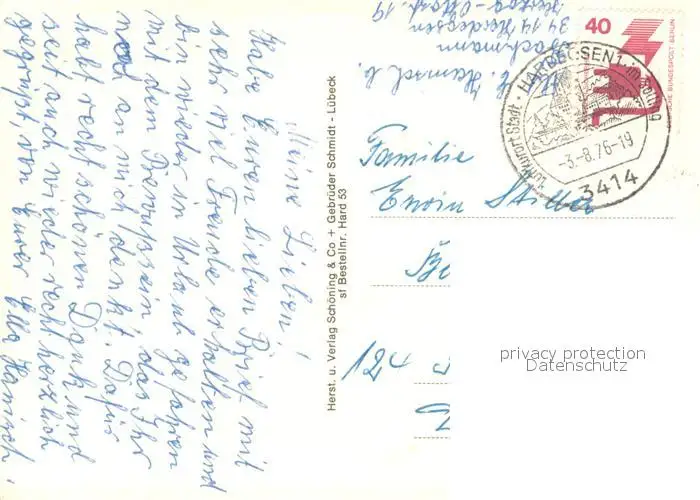 Meine Lieben!
Habe Euren lieben Brief mit
sehr viel Freude erhalten und
bin wieder in Urlaub gefahren
mit dem Bewußsein das Ihr
noch an mich denkt. Dafür
habt recht schönen Dank und
seit auch wieder recht herzlich
gegrüßt von Eurer Ella Hanisch.
Herst. u. Verlag Schöning & Co + Gebrüder Schmidt - Lübeck
sf Bestellnr. Hard 53
b.
3414 Hardegsen
Herzog-Otto-str. 19
40
DEUTSCHE BUNDESPOST BERLIN
Luftkurort Stadt · HARDEGSEN 1 · im Solling
-3.-8.76-19
3414
Familie
Erwin
Be
124
privacy protection
Datenschutz